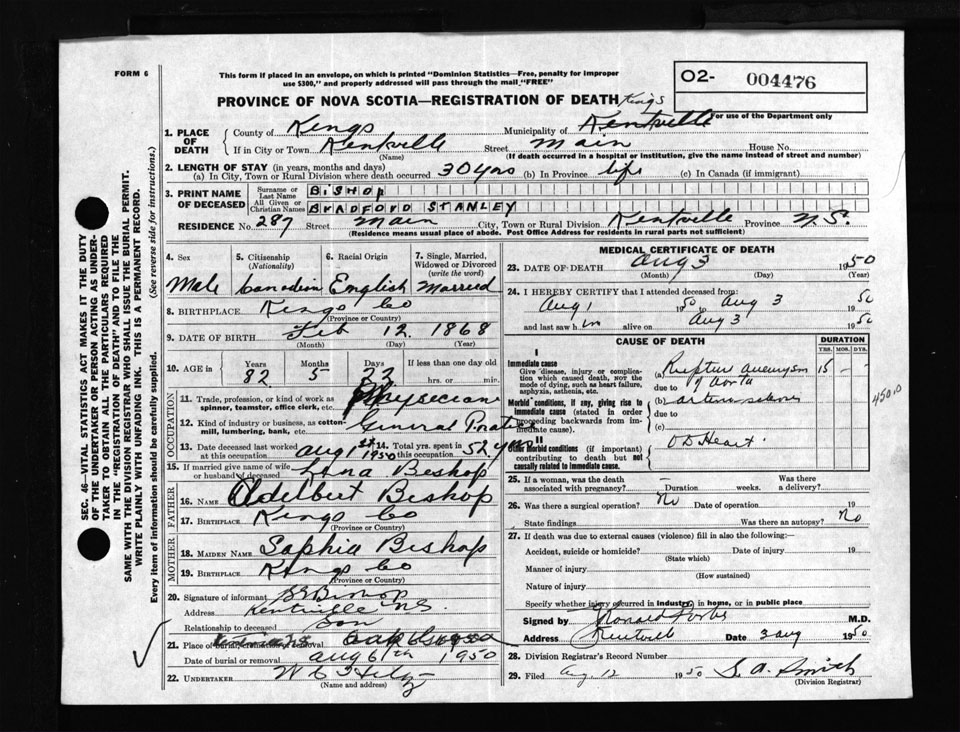 FORM 6
This form if placed in an envelope, on which is printed "Dominion Statistics—Free, penalty for improper
use $300," and properly addressed will pass through the mail "FREE"
O2- 004476
PROVINCE OF NOVA SCOTIA—REGISTRATION OF DEATH Kings
For use of the Department only
1. PLACE OF DEATH
County of Kings Municipality of Kentville
If in City or Town Kentville Street Main House No.
(Name) (If death occurred in a hospital or institution, give the name instead of street and number)
2. LENGTH OF STAY (in years, months and days)
(a) In City, Town or Rural Division where death occurred 30 yrs (b) In Province life (c) In Canada (if immigrant)
3. PRINT NAME OF DECEASED
Surname or Last Name BISHOP
All Given or Christian Names BRADFORD STANLEY
RESIDENCE No. 287 Street Main City, Town or Rural Division Kentville Province N.S.
(Residence means usual place of abode. Post Office Address for residents in rural parts not sufficient)
4. Sex
5. Citizenship (Nationality)
6. Racial Origin
7. Single, Married, Widowed or Divorced (write the word)
Male Canadian English Married
8. BIRTHPLACE Kings Co
(Province or Country)
9. DATE OF BIRTH Feb 12 1868
(Month) (Day) (Year)
10. AGE in Years Months Days If less than one day old
82 5 22 hrs. or min.
OCCUPATION
11. Trade, profession, or kind of work as spinner, teamster, office clerk, etc. Physician
12. Kind of industry or business, as cotton-mill, lumbering, bank, etc. General
13. Date deceased last worked at this occupation Aug 1st 1950 14. Total yrs. spent in this occupation 52 years
15. If married give name of wife or husband of deceased Lena Bishop
FATHER
16. NAME Adelbert Bishop
17. BIRTHPLACE Kings Co
(Province or Country)
MOTHER
18. MAIDEN NAME Sophia Bishop
19. BIRTHPLACE Kings Co
(Province or Country)
20. Signature of informant Bishop
Address Kentville N.S.
Relationship to deceased Son
21. Place of burial, cremation or removal Oak
Date of burial or removal Aug 6th 1950
22. UNDERTAKER W
(Name and address)
MEDICAL CERTIFICATE OF DEATH
23. DATE OF DEATH Aug 3 1950
(Month) (Day) (Year)
24. I HEREBY CERTIFY that I attended deceased from:
Aug 1 1950 to Aug 3 1950
and last saw him alive on Aug 3 1950
CAUSE OF DEATH
DURATION
YRS. MOS. DYS.
I
Immediate cause
Give disease, injury or complication which caused death, not the mode of dying, such as heart failure, asphyxia, asthenia, etc.
(a) Rupture aneurysm 15 - -
due to of Aorta
Morbid conditions, if any, giving rise to immediate cause (stated in order proceeding backwards from immediate cause).
(b)
due to
(c)
450.0
II
Other morbid conditions (if important) contributing to death but not causally related to immediate cause.
Heart.
25. If a woman, was the death associated with pregnancy? - Duration weeks. Was there a delivery?
26. Was there a surgical operation? No Date of operation 19
State findings Was there an autopsy? No
27. If death was due to external causes (violence) fill in also the following:—
Accident, suicide or homicide? Date of injury 19
(State which)
Manner of injury
(How sustained)
Nature of injury
Specify whether injury occurred in industry, in home, or in public place
Signed by M.D.
Address Kentville Date 3 Aug 1950
28. Division Registrar's Record Number
29. Filed Aug. 12 1950 S. A. Smith
(Division Registrar)
SEC. 46—VITAL STATISTICS ACT MAKES IT THE DUTY
OF THE UNDERTAKER OR PERSON ACTING AS UNDER-
TAKER TO OBTAIN ALL THE PARTICULARS REQUIRED
IN THE "REGISTRATION OF DEATH" AND TO FILE THE
SAME WITH THE DIVISION REGISTRAR WHO SHALL ISSUE THE BURIAL PERMIT.
WRITE PLAINLY WITH UNFADING INK. THIS IS A PERMANENT RECORD.
Every item of information should be carefully supplied. (See reverse side for instructions.)